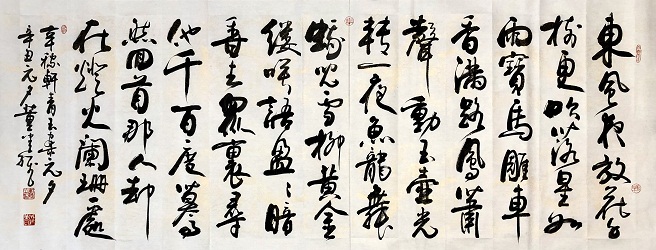 東風夜放花千
樹更吹落星如
雨寶馬雕車
香滿路鳳簫
聲動玉壺光
轉一夜魚龍舞
蛾兒雪柳黃金
縷笑語盈〻暗
香去眾裏尋
他千百度驀
然回首那人却
在燈火闌珊處
辛稼軒青玉案元夕
辛丑元夕董